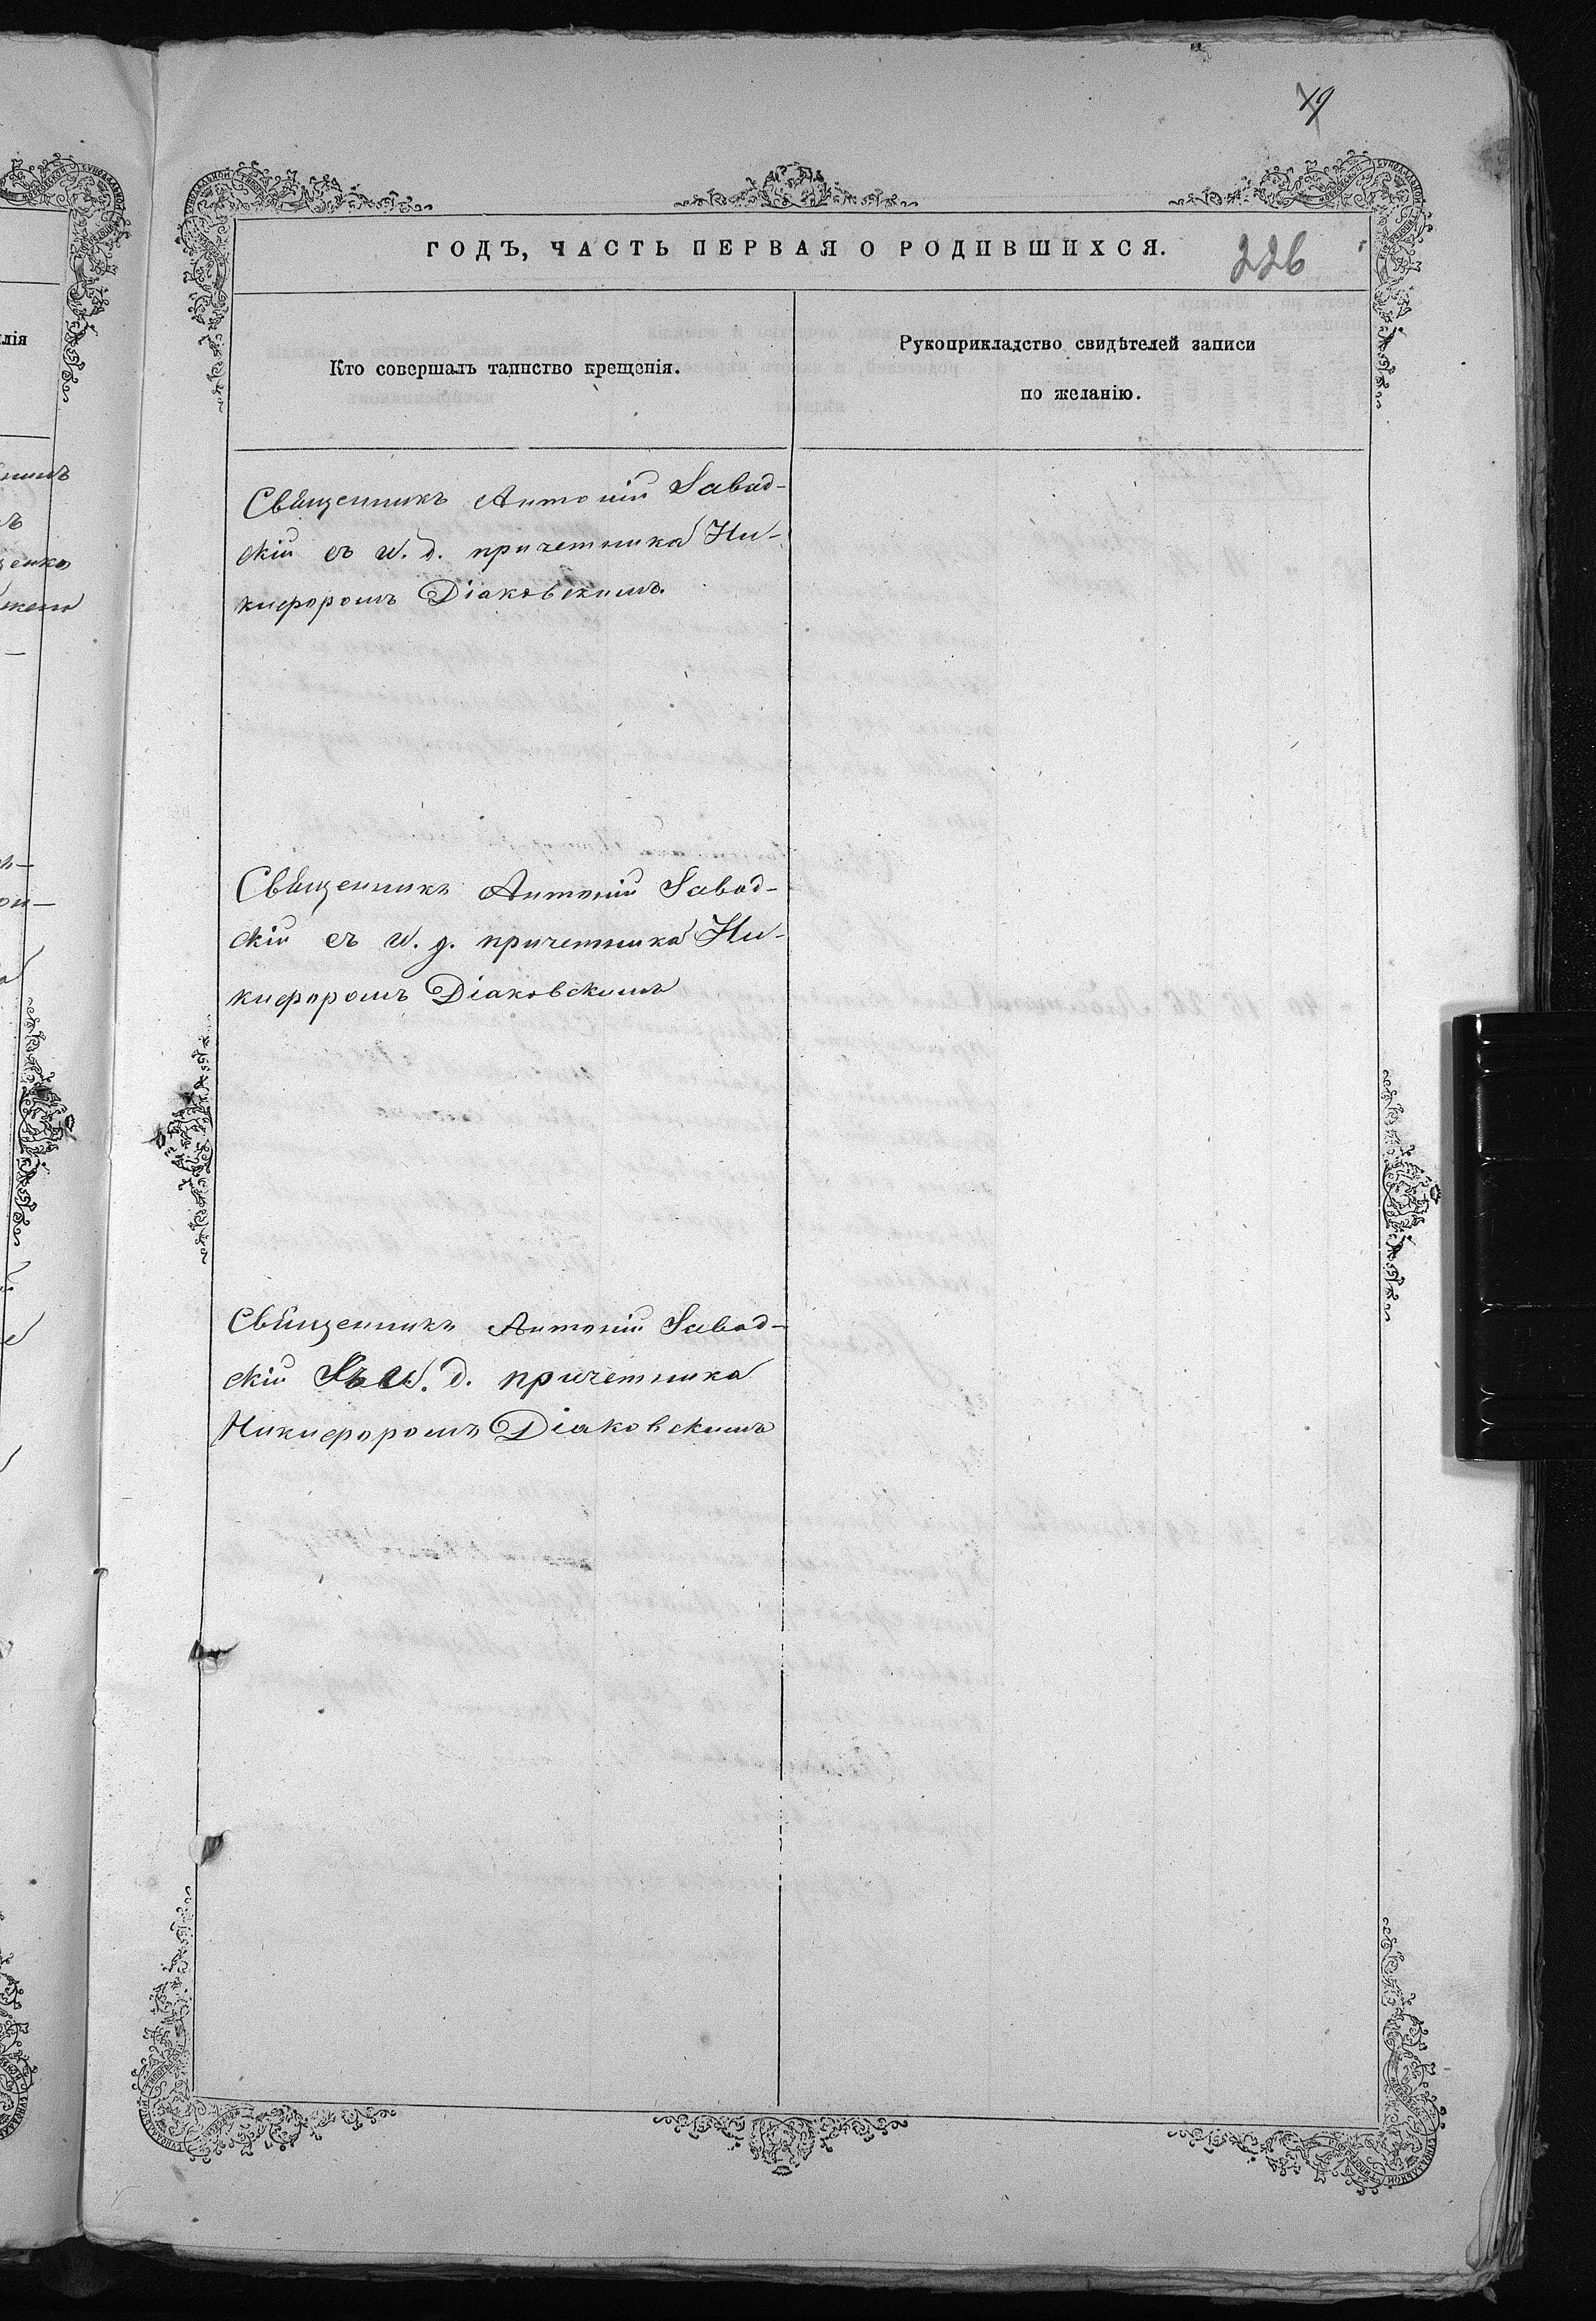 19
ГОДЪ, ЧАСТЬ ПЕРВАЯ О РОДИВШИХСЯ.
226
Кто совершалъ таинство крещенія.
Рукоприкладство свидѣтелей записи
по желанію.
Священникъ Антоній Завад-
скій съ и. д. причетника Ни-
кифоромъ Діаковскимъ.
Священникъ Антоній Завад-
скій съ и. д. причетника Ни-
кифоромъ Діаковскимъ
Священникъ Антоній Завад-
скій съ и. д. причетника
Никифоромъ Діаковскимъ